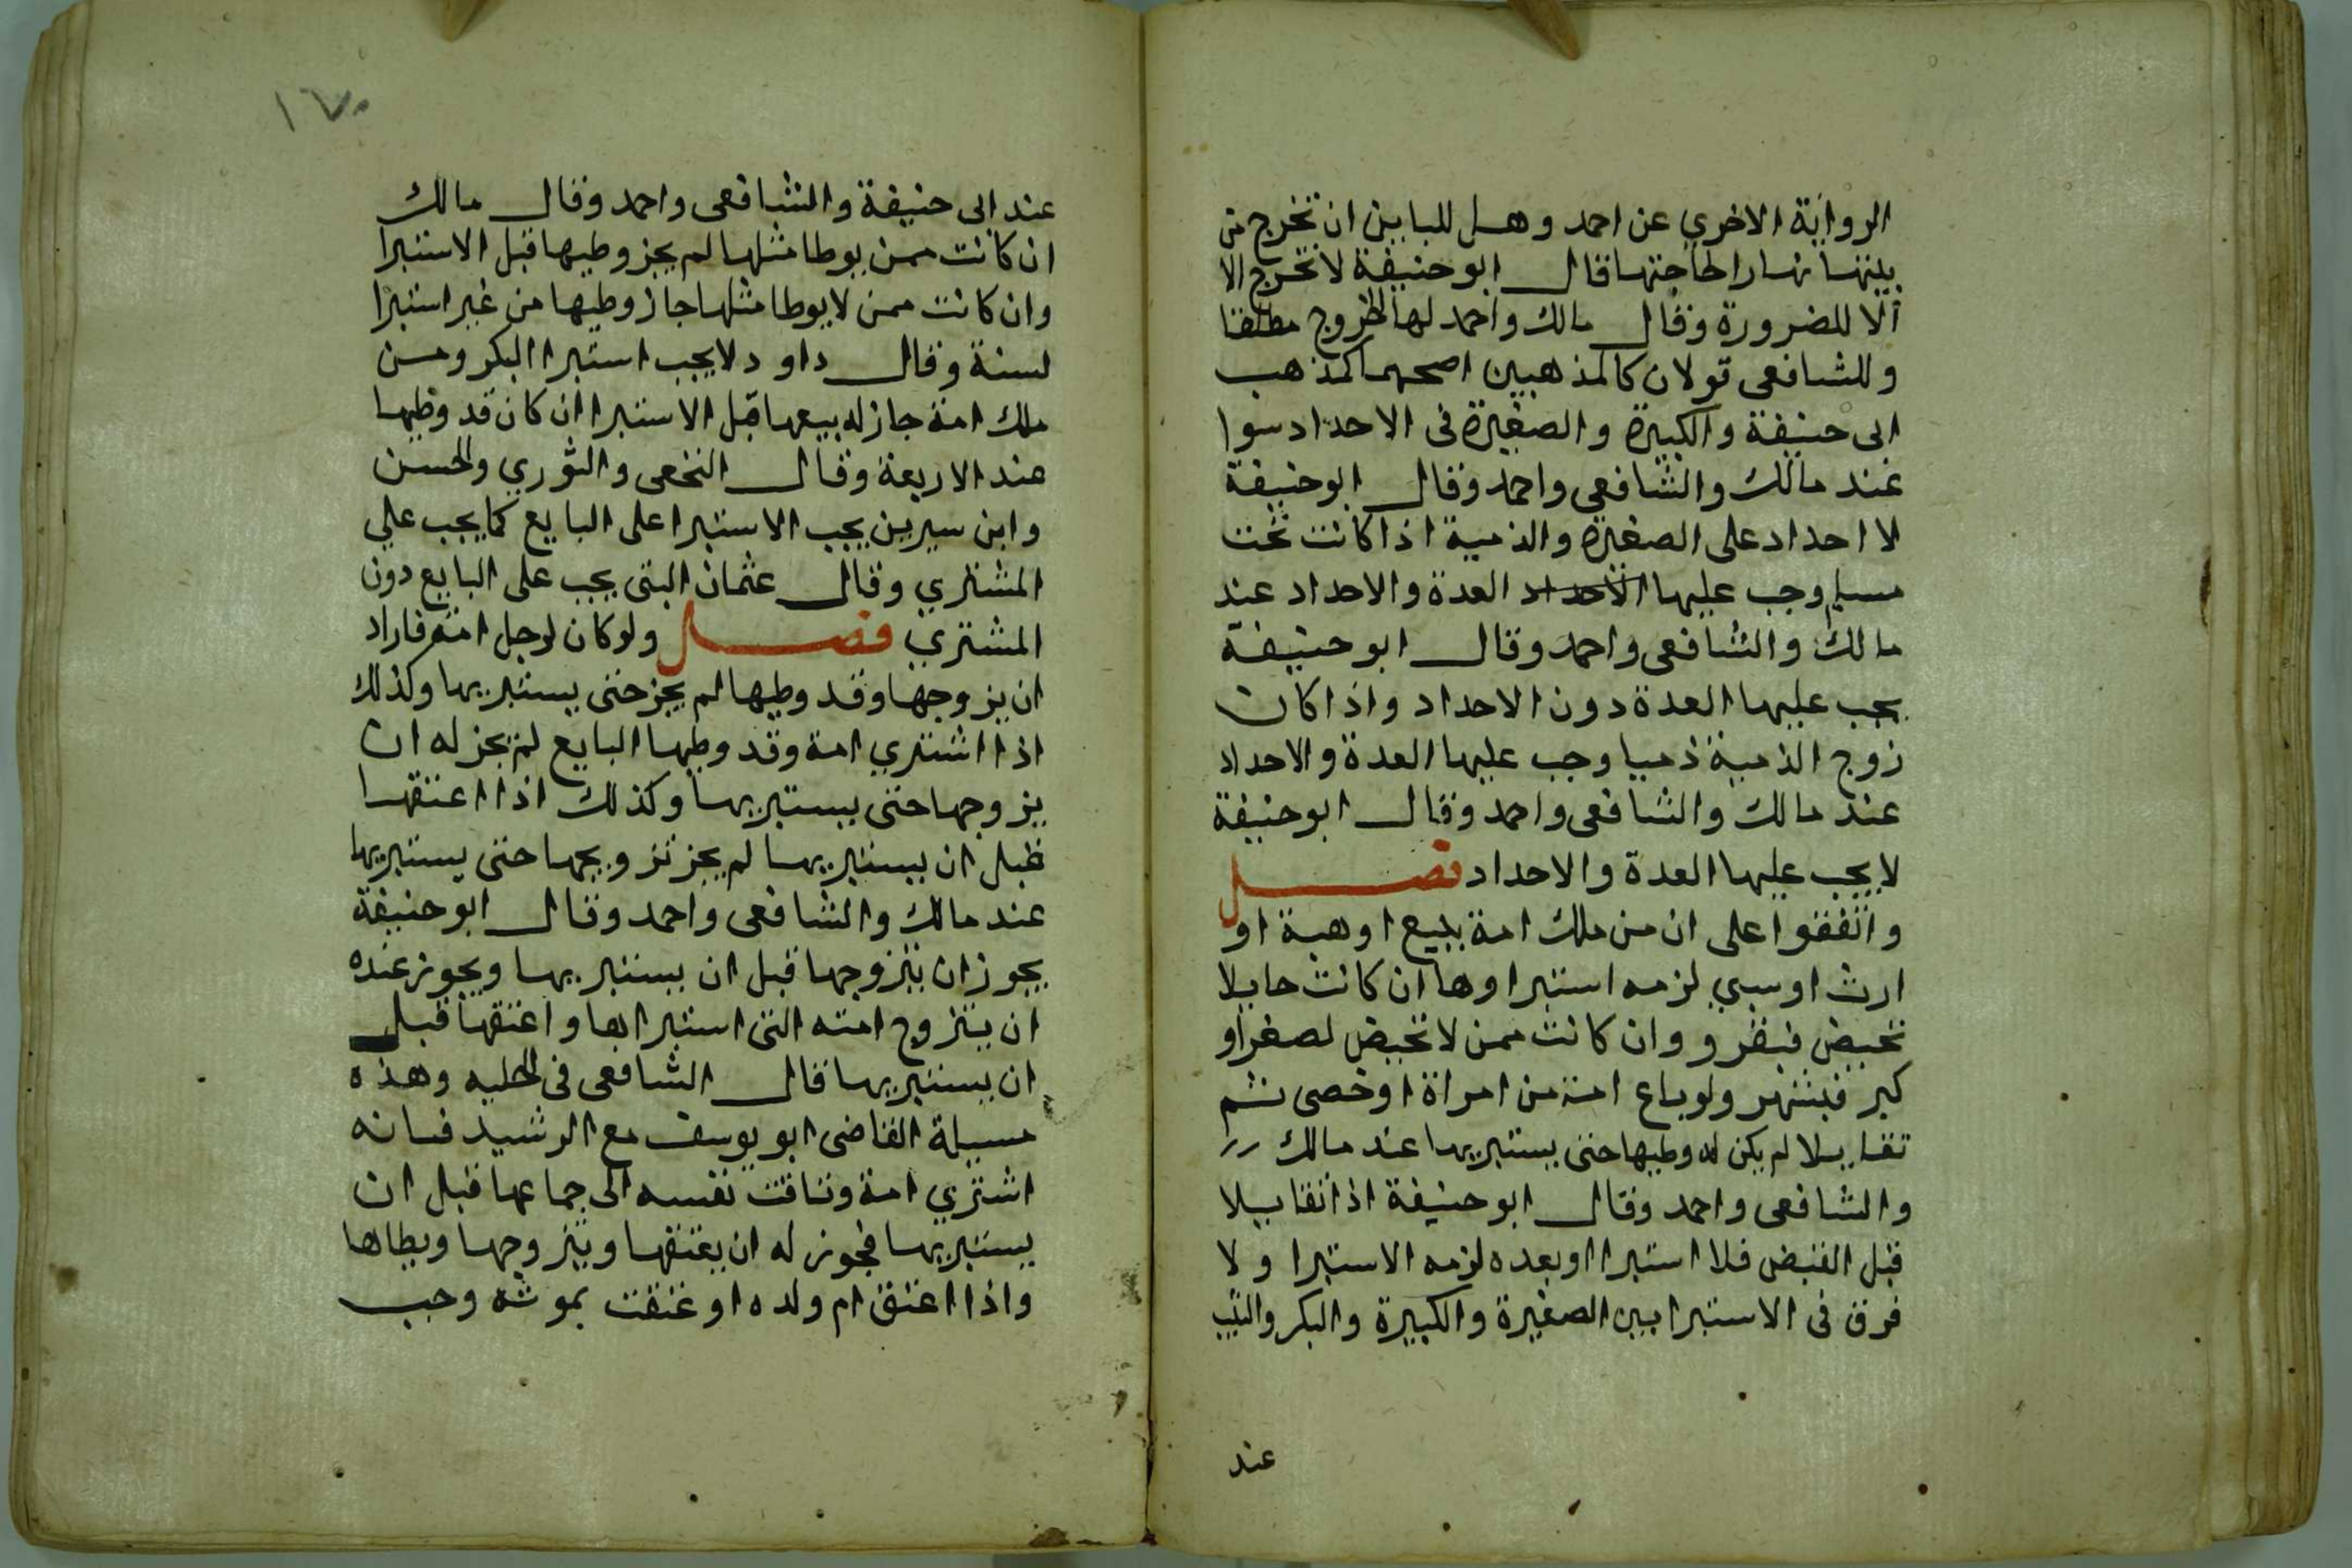 الرواية الاخري عن احمد وهل للباين ان تخرج من
بيتها نهارا لحاجتها قال ابو حنيفة لا تخرج الا
الا للضرورة وقال مالك واحمد لها الخروج مطلقا
وللشافعى قولان كالمذهبين اصحهما كمذهب
ابى حنيفة والكبيرة والصغيرة فى الاحداد سوا
عند مالك والشافعي واحمد وقال ابو حنيفة
لا احداد على الصغيرة والذمية اذا كانت تحت
مسلم وجب عليها الاحداد العدة والاحداد عند
مالك والشافعى واحمد وقال ابو حنيفة
يجب عليها العدة دون الاحداد واذا كان
زوج الذمية ذميا وجب عليها العدة والاحداد
عند مالك والشافعى واحمد وقال ابو حنيفة
لا يجب عليها العدة والاحداد فصل
واتفقوا على ان من ملك امة ببيع او هبة او
ارث او سبي لزمه استبراوها ان كانت حايلا
تحيض فبقرو وان كانت ممن لا تحيض لصغر او
كبر فبشهر ولو باع امة من امراة او خصى ثم
تقايلا لم يكن له وطيها حتى يستبريها عند مالك
والشافعى واحمد وقال ابو حنيفة اذا تقايلا
قبل القبض فلا استبرا او بعده لزمه الاستبرا ولا
فرق فى الاستبرا بين الصغيرة والكبيرة والبكر والثيب
عند
١٧٠
عند ابى حنيفة والشافعى واحمد وقال مالك
ان كانت ممن يوطا مثلها لم يجز وطيها قبل الاستبرا
وان كانت ممن لا يوطا مثلها جاز وطيها من غير استبرا
لسنة وقال داود لا يجب استبرا البكر ومن
ملك امة جاز له بيعها قبل الاستبرا ان كان قد وطيها
عند الاربعة وقال النخعى والثوري والحسن
وابن سيرين يجب الاستبرا على البايع كما يجب علي
المشتري وقال عثمان البتى يجب على البايع دون
المشتري فصل ولو كان لرجل امة فاراد
ان يزوجها وقد وطيها لم يجز حتى يستبريها وكذلك
اذا اشتري امة وقد وطيها البايع لم يجز له ان
يزوجها حتى يستبريها وكذلك اذا اعتقها
قبل ان يستبريها لم يجز تزويجها حتى يستبريها
عند مالك والشافعى واحمد وقال ابو حنيفة
يجوز ان يتزوجها قبل ان يستبريها ويجوز عنده
ان يتزوج امته التى استبراها واعتقها قبل
ان يستبريها قال الشافعى فى الحليه وهذه
مسيلة القاضى ابو يوسف مع الرشيد فانه
اشتري امة وتاقت نفسه الى جماعها قبل ان
يستبريها فجوز له ان يعتقها ويتزوجها ويطاها
واذا اعتق ام ولده او عتقت بموته وجب